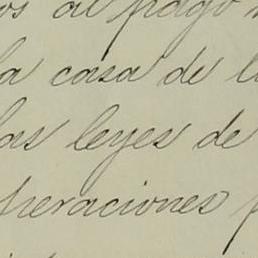 os al pago
la casa de l
las leyes de
peraciones